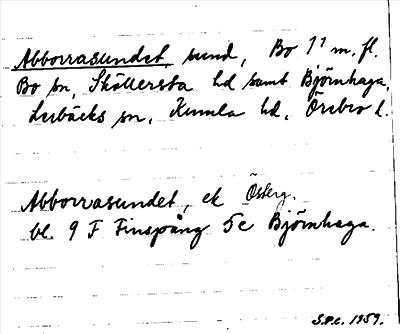 Abborrasundet, sund, Bo 1¹ m. fl.
Bo sn, Sköllersta hd samt Björnhaga,
Lerbäcks sn, Kumla hd, Örebro l.
Abborrasundet, ek Österg.
bl. 9 F Finspång 5c Björnhaga.
S.P.C. 1959.